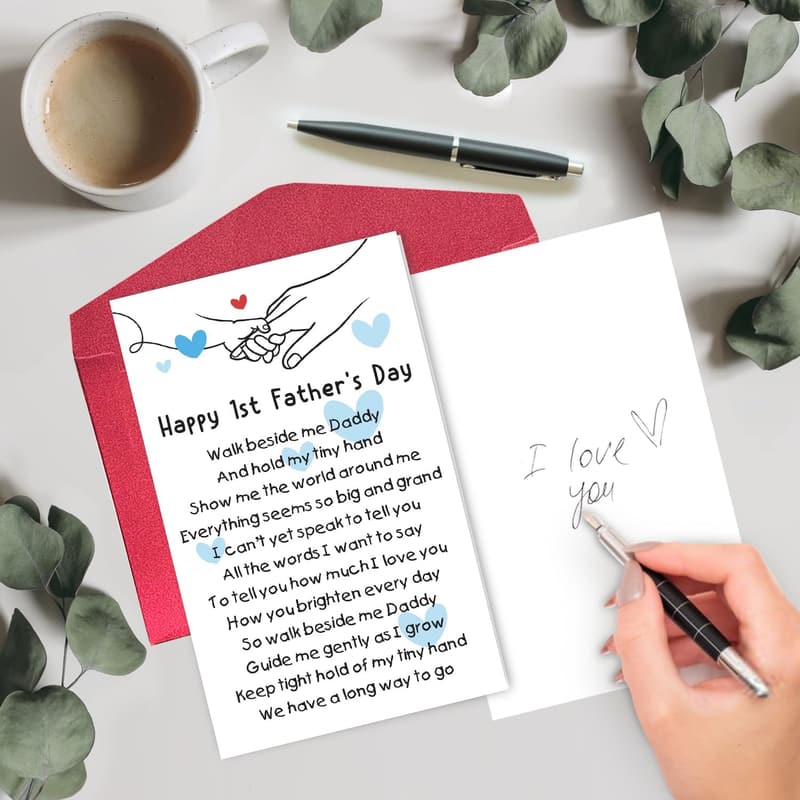 Happy 1st Father's Day
Walk beside me Daddy
And hold my tiny hand
Show me the world around me
Everything seems so big and grand
I can't yet speak to tell you
All the words I want to say
To tell you how much I love you
How you brighten every day
So walk beside me Daddy
Guide me gently as I grow
Keep tight hold of my tiny hand
We have a long way to go
I love
you